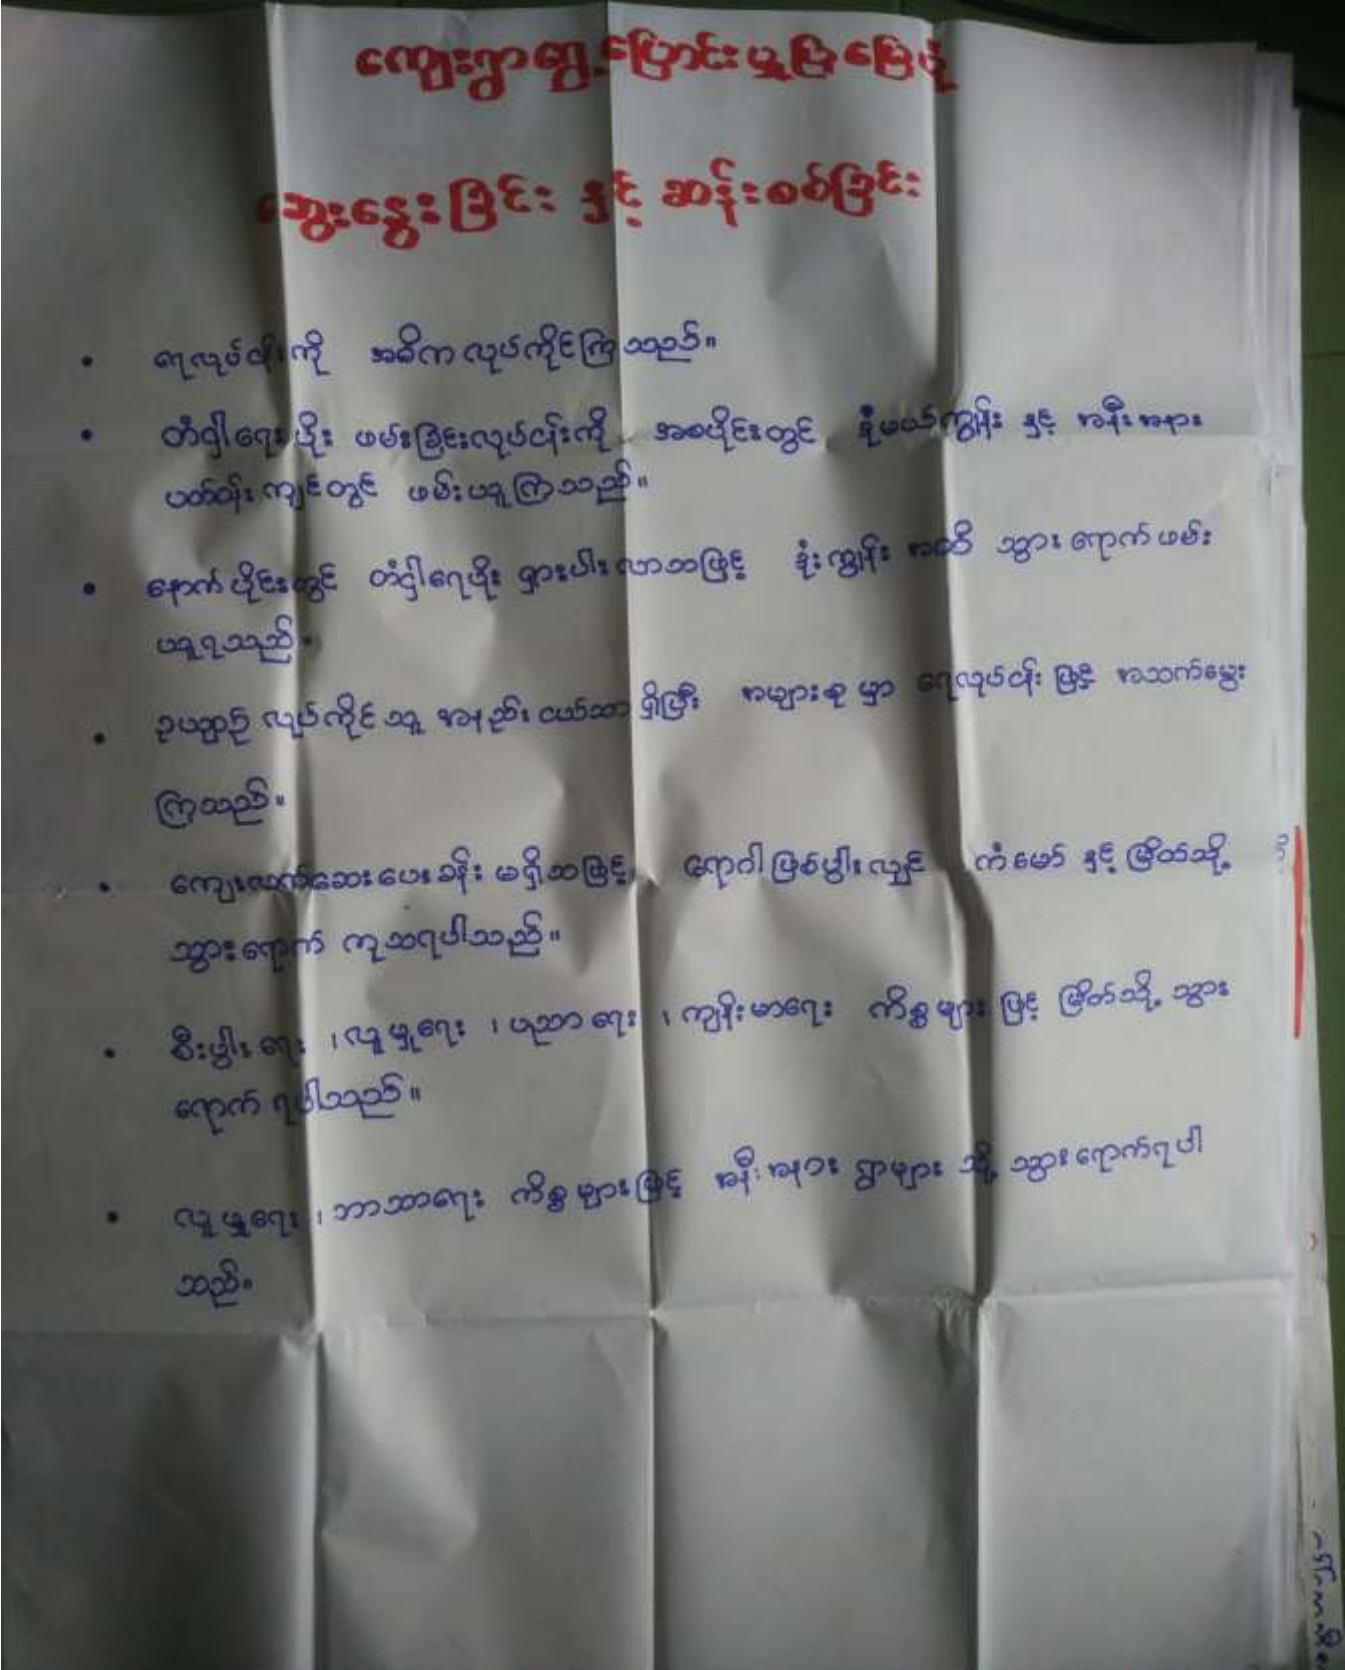 ကျေးရွာရွှေ့ပြောင်းမှုပြမြေပုံ
ဆွေးနွေးခြင်း နှင့် ဆန်းစစ်ခြင်း
• ရေလုပ်ငန်းကို အဓိကလုပ်ကိုင်ကြသည်။
• တံငါရေပိုး ဖမ်းခြင်းလုပ်ငန်းကို အစပိုင်းတွင် ဒုံမယ်ကျွန်း နှင့် အနီးအနား
ပတ်ဝန်းကျင်တွင် ဖမ်းယူကြသည်။
• နောက်ပိုင်းတွင် တံငါရေပိုး ရှားပါးလာသဖြင့် ဒုံးကျွန်း အထိ သွားရောက်ဖမ်း
ယူရသည်။
• ဥယျာဉ် လုပ်ကိုင်သူ အနည်းငယ်သာ ရှိပြီး အများစုမှာ ရေလုပ်ငန်း ဖြင့် အသက်မွေး
ကြသည်။
• ကျေးလက်ဆေးပေးခန်း မရှိသဖြင့် ရောဂါဖြစ်ပွါးလျှင် ကံမော် နှင့် မြိတ်သို့
သွားရောက် ကုသရပါသည်။
• စီးပွါးရေး ၊ လူမှုရေး ၊ ပညာရေး ၊ ကျန်းမာရေး ကိစ္စများ ဖြင့် မြိတ်သို့ သွား
ရောက်ရပါသည်။
• လူမှုရေး ၊ ဘာသာရေး ကိစ္စများဖြင့် အနီးအနား ရွာများ သို့ သွားရောက်ရပါ
သည်။